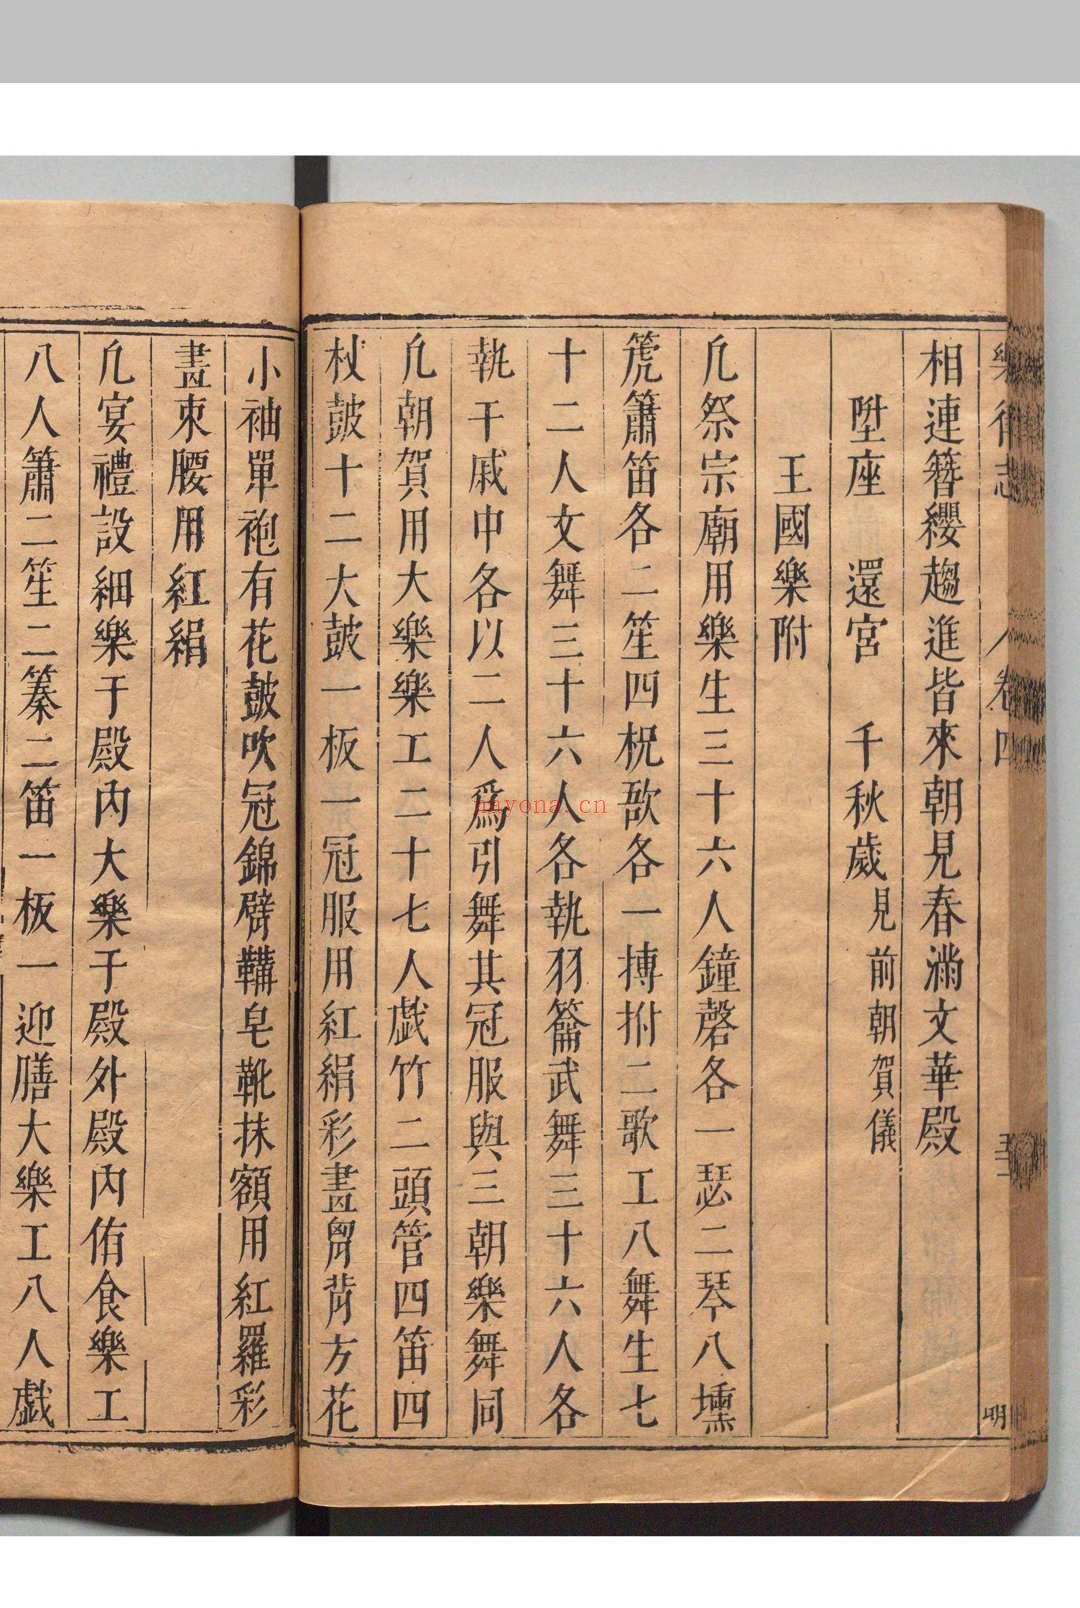 樂律志 卷四 明
相連簪纓趨進皆來朝見春滿文華殿
陞座 還宮 千秋歲見前朝賀儀
王國樂附
凢祭宗廟用樂生三十六人鐘磬各一瑟二琴八壎
箎簫笛各二笙四柷敔各一搏拊二歌工八舞生七
十二人文舞三十六人各執羽籥武舞三十六人各
執干戚申各以二人爲引舞其冠服與三朝樂舞同
凢朝賀用大樂樂工二十七人戯竹二頭管四笛四
杖鼓十二大鼓一板一冠服用紅絹彩畫胷背方花
小袖單袍有花鼓吹冠錦臂韝皂靴抹額用紅羅彩
畫束腰用紅絹
凢宴禮設細樂于殿內大樂于殿外殿內侑食樂工
八人簫二笙二𥱧二笛一板一迎膳大樂工八人戯
nayona.cn